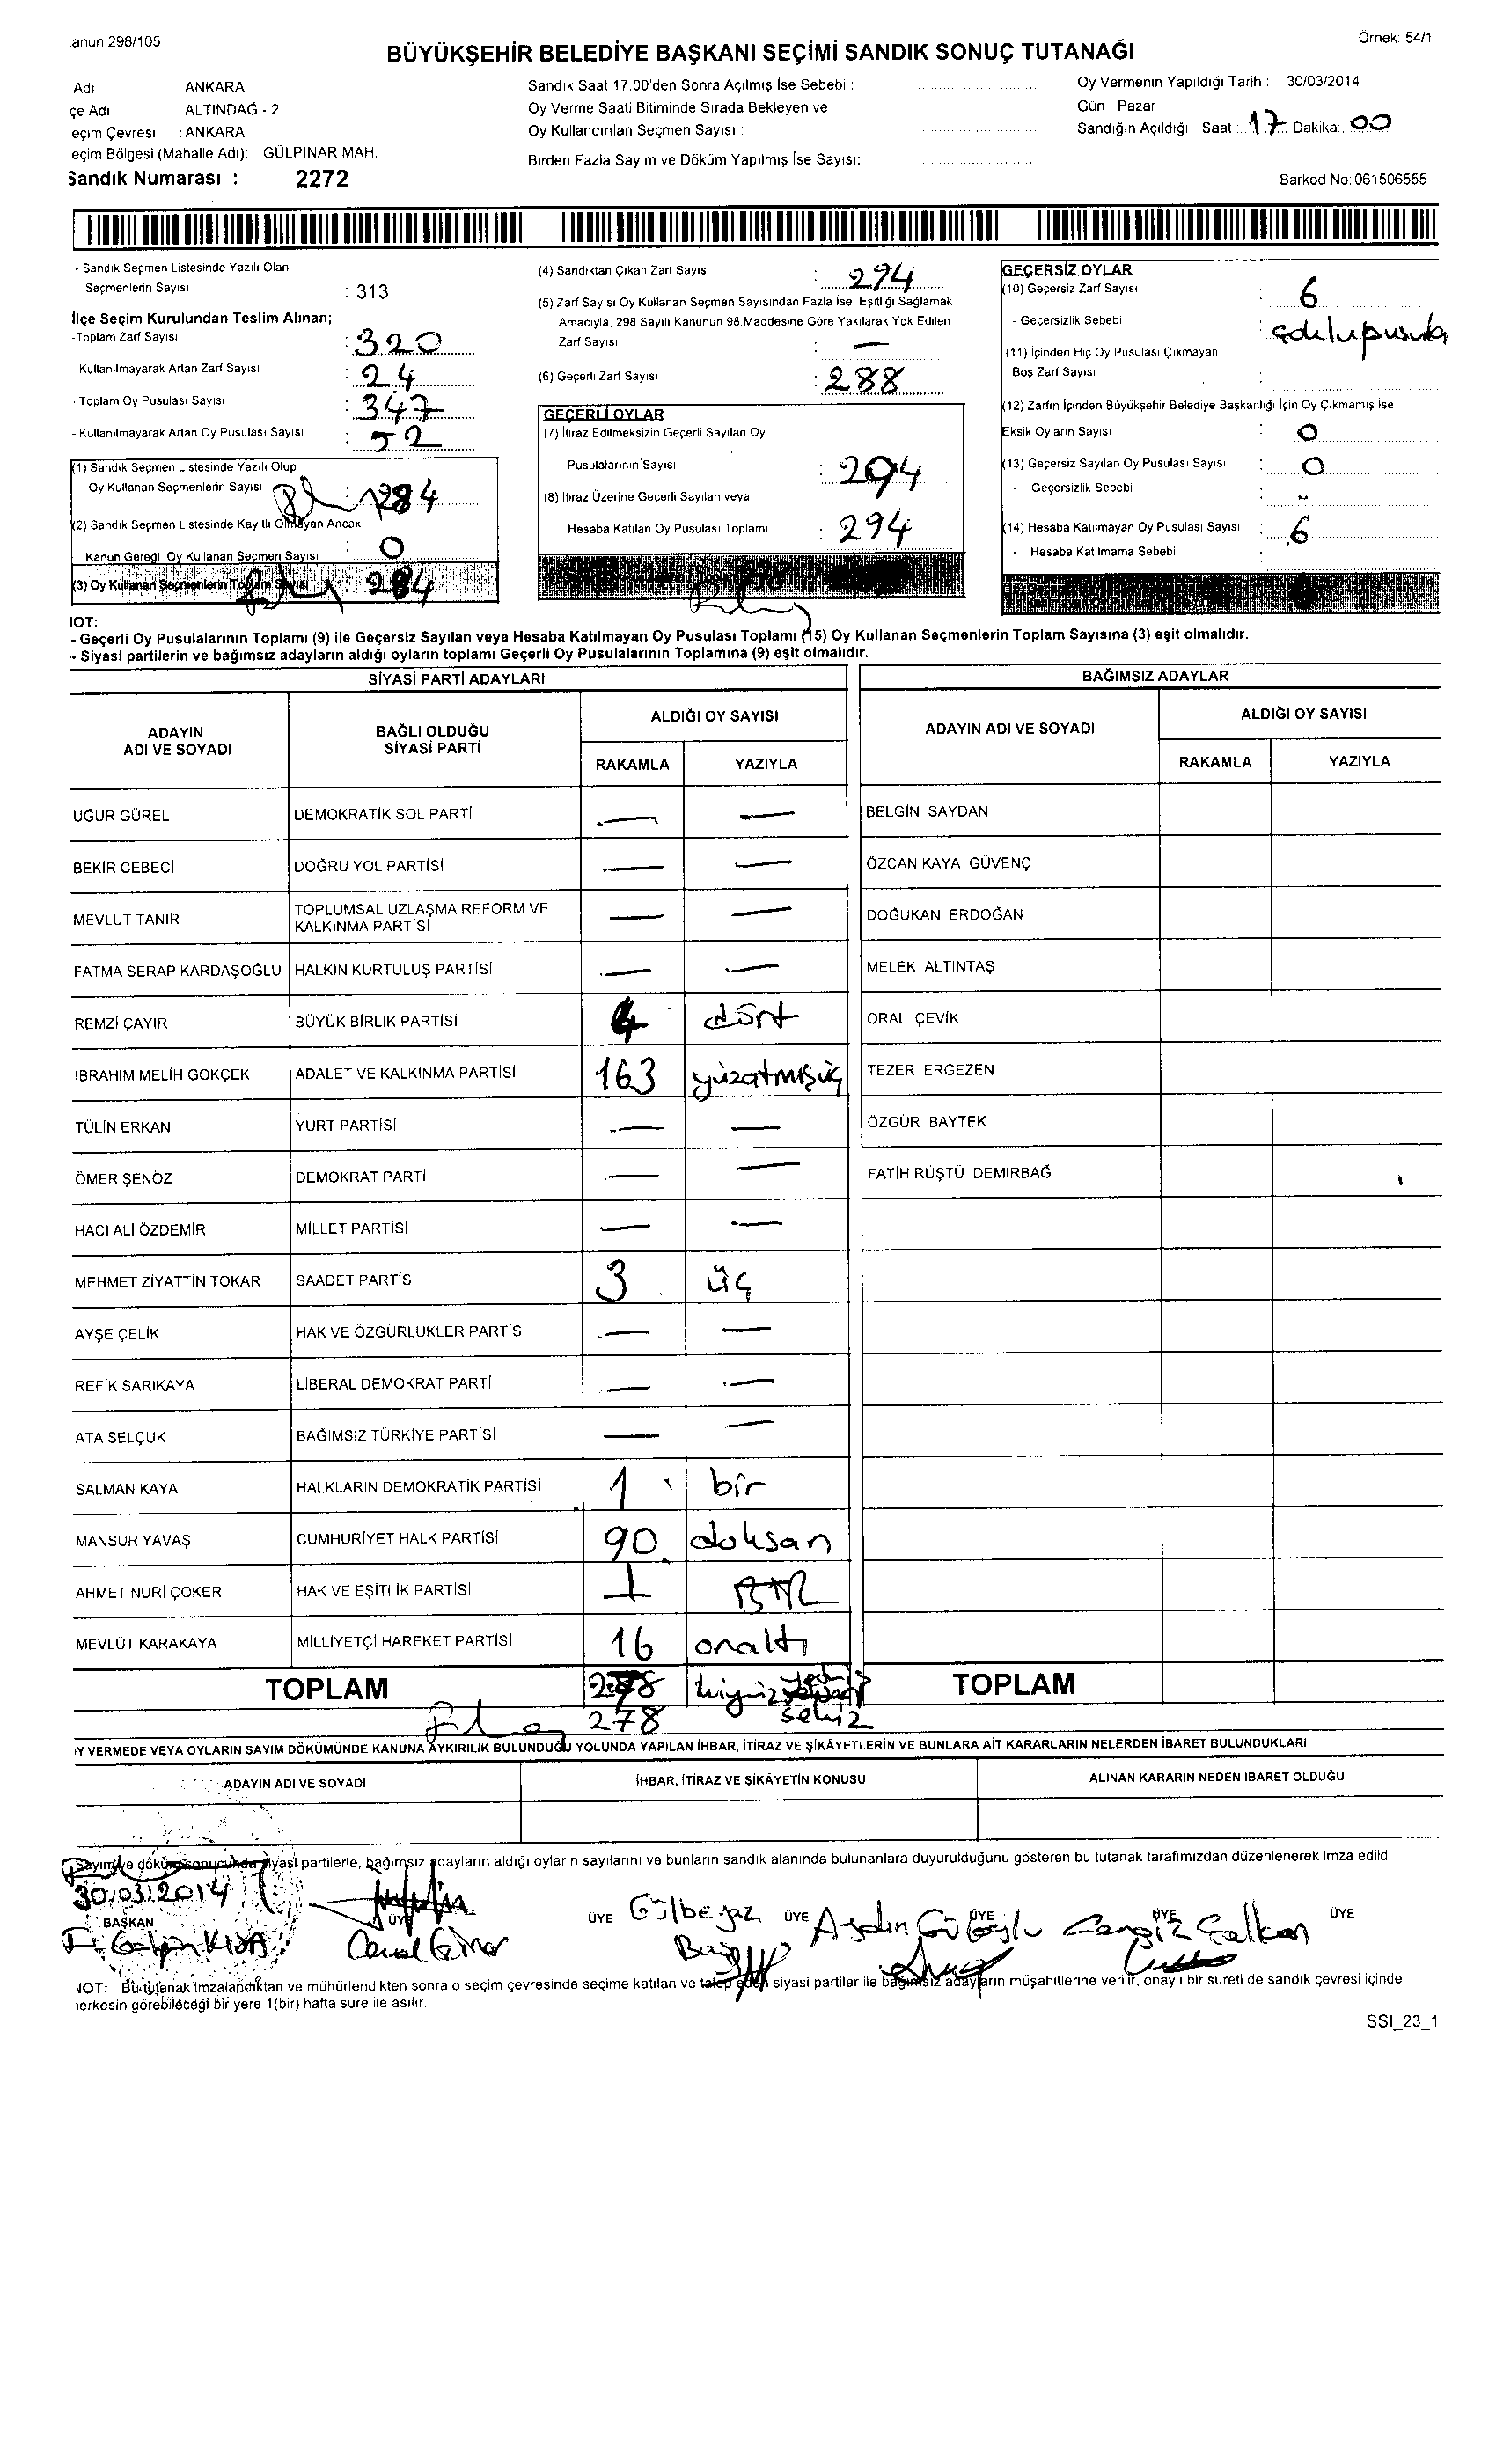 :anun,298/105
Örnek: 54/1
BÜYÜKŞEHİR BELEDİYE BAŞKANI SEÇİMİ SANDIK SONUÇ TUTANAĞI
Adı : ANKARA
çe Adı ALTINDAĞ - 2
eçim Çevresi : ANKARA
eçim Bölgesi (Mahalle Adı): GÜLPINAR MAH.
Sandık Numarası : 2272
Sandık Saat 17.00'den Sonra Açılmış İse Sebebi :
Oy Verme Saati Bitiminde Sırada Bekleyen ve
Oy Kullandırılan Seçmen Sayısı :
Birden Fazla Sayım ve Döküm Yapılmış İse Sayısı:
Oy Vermenin Yapıldığı Tarih : 30/03/2014
Gün : Pazar
Sandığın Açıldığı Saat : 17 Dakika: 00
Barkod No:061506555
- Sandık Seçmen Listesinde Yazılı Olan
Seçmenlerin Sayısı : 313
İlçe Seçim Kurulundan Teslim Alınan;
-Toplam Zarf Sayısı : 320
- Kullanılmayarak Artan Zarf Sayısı : 24
- Toplam Oy Pusulası Sayısı : 347
- Kullanılmayarak Artan Oy Pusulası Sayısı : 52
(1) Sandık Seçmen Listesinde Yazılı Olup
Oy Kullanan Seçmenlerin Sayısı : 284
(2) Sandık Seçmen Listesinde Kayıtlı Olmayan Ancak
Kanun Gereği Oy Kullanan Seçmen Sayısı : 0
(3) Oy Kullanan Seçmenlerin Toplam Sayısı : 284
(4) Sandıktan Çıkan Zarf Sayısı : 294
(5) Zarf Sayısı Oy Kullanan Seçmen Sayısından Fazla İse, Eşitliği Sağlamak
Amacıyla, 298 Sayılı Kanunun 98.Maddesine Göre Yakılarak Yok Edilen
Zarf Sayısı : —
(6) Geçerli Zarf Sayısı : 288
GEÇERLİ OYLAR
(7) İtiraz Edilmeksizin Geçerli Sayılan Oy
Pusulalarının Sayısı : 294
(8) İtiraz Üzerine Geçerli Sayılan veya
Hesaba Katılan Oy Pusulası Toplamı : 294
GEÇERSİZ OYLAR
(10) Geçersiz Zarf Sayısı : 6
- Geçersizlik Sebebi :
(11) İçinden Hiç Oy Pusulası Çıkmayan
Boş Zarf Sayısı :
(12) Zarfın İçinden Büyükşehir Belediye Başkanlığı İçin Oy Çıkmamış İse
Eksik Oyların Sayısı : 0
(13) Geçersiz Sayılan Oy Pusulası Sayısı : 0
- Geçersizlik Sebebi :
(14) Hesaba Katılmayan Oy Pusulası Sayısı : 6
- Hesaba Katılmama Sebebi :
IOT:
- Geçerli Oy Pusulalarının Toplamı (9) ile Geçersiz Sayılan veya Hesaba Katılmayan Oy Pusulası Toplamı (15) Oy Kullanan Seçmenlerin Toplam Sayısına (3) eşit olmalıdır.
- Siyasi partilerin ve bağımsız adayların aldığı oyların toplamı Geçerli Oy Pusulalarının Toplamına (9) eşit olmalıdır.
SİYASİ PARTİ ADAYLARI
BAĞIMSIZ ADAYLAR
ADAYIN ADI VE SOYADI
BAĞLI OLDUĞU SİYASİ PARTİ
ALDIĞI OY SAYISI
RAKAMLA YAZIYLA
ADAYIN ADI VE SOYADI
ALDIĞI OY SAYISI
RAKAMLA YAZIYLA
UĞUR GÜREL DEMOKRATİK SOL PARTİ — — BELGİN SAYDAN
BEKİR CEBECİ DOĞRU YOL PARTİSİ — — ÖZCAN KAYA GÜVENÇ
MEVLÜT TANIR TOPLUMSAL UZLAŞMA REFORM VE KALKINMA PARTİSİ — — DOĞUKAN ERDOĞAN
FATMA SERAP KARDAŞOĞLU HALKIN KURTULUŞ PARTİSİ — — MELEK ALTINTAŞ
REMZİ ÇAYIR BÜYÜK BİRLİK PARTİSİ 4 dört ORAL ÇEVİK
İBRAHİM MELİH GÖKÇEK ADALET VE KALKINMA PARTİSİ 163 yüzatmışüç TEZER ERGEZEN
TÜLİN ERKAN YURT PARTİSİ — — ÖZGÜR BAYTEK
ÖMER ŞENÖZ DEMOKRAT PARTİ — — FATİH RÜŞTÜ DEMİRBAĞ
HACI ALİ ÖZDEMİR MİLLET PARTİSİ — —
MEHMET ZİYATTİN TOKAR SAADET PARTİSİ 3 üç
AYŞE ÇELİK HAK VE ÖZGÜRLÜKLER PARTİSİ — —
REFİK SARIKAYA LİBERAL DEMOKRAT PARTİ — —
ATA SELÇUK BAĞIMSIZ TÜRKİYE PARTİSİ — —
SALMAN KAYA HALKLARIN DEMOKRATİK PARTİSİ 1 bir
MANSUR YAVAŞ CUMHURİYET HALK PARTİSİ 90 doksan
AHMET NURİ ÇOKER HAK VE EŞİTLİK PARTİSİ 1 BİR
MEVLÜT KARAKAYA MİLLİYETÇİ HAREKET PARTİSİ 16 onaltı
TOPLAM TOPLAM
278 sekiz
IY VERMEDE VEYA OYLARIN SAYIM DÖKÜMÜNDE KANUNA AYKIRILIK BULUNDUĞU YOLUNDA YAPILAN İHBAR, İTİRAZ VE ŞİKÂYETLERİN VE BUNLARA AİT KARARLARIN NELERDEN İBARET BULUNDUKLARI
ADAYIN ADI VE SOYADI İHBAR, İTİRAZ VE ŞİKÂYETİN KONUSU ALINAN KARARIN NEDEN İBARET OLDUĞU
Sayım ve döküm sonucunda siyasi partilerle, bağımsız adayların aldığı oyların sayılarını ve bunların sandık alanında bulunanlara duyurulduğunu gösteren bu tutanak tarafımızdan düzenlenerek imza edildi.
30/03/2014
BAŞKAN ÜYE ÜYE Gülbeyaz ÜYE Aydın ÜYE Cengiz ÜYE Çalkan ÜYE
NOT: Bu tutanak imzalandıktan ve mühürlendikten sonra o seçim çevresinde seçime katılan ve talep eden siyasi partiler ile bağımsız adayların müşahitlerine verilir, onaylı bir sureti de sandık çevresi içinde
herkesin görebileceği bir yere 1(bir) hafta süre ile asılır.
SSI_23_1